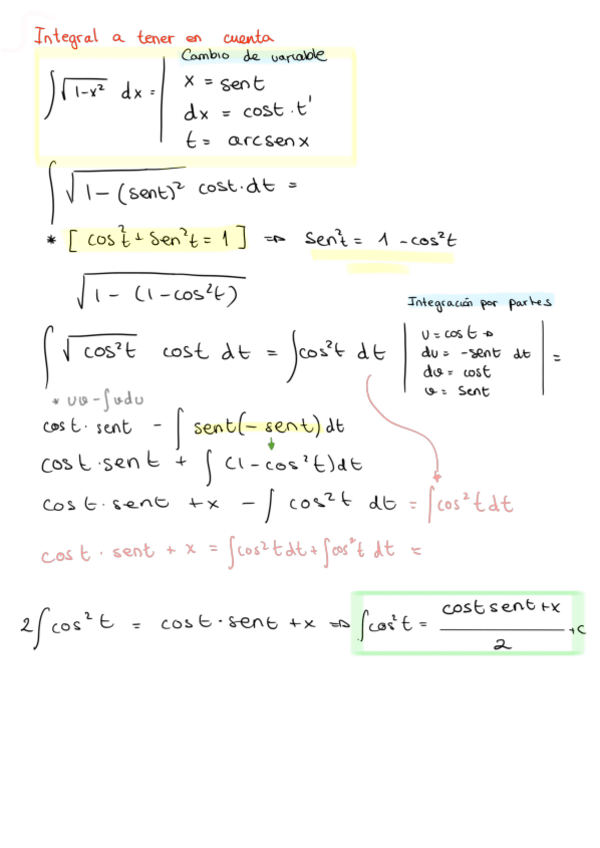 Integral a tener en cuenta
Cambio de variable
∫√(1-x²) dx =
x = sent
dx = cost · t'
t = arcsenx
∫√(1-(sent)²) cost·dt =
* [cos²t + sen²t = 1] ⇒ sen²t = 1 - cos²t
√(1 - (1-cos²t))
Integración por partes
∫√(cos²t) cost dt = ∫cos²t dt
u = cost →
du = -sent dt
dv = cost
v = sent
=
* uv - ∫vdu
cost · sent - ∫ sent(-sent)dt
cost · sent + ∫ (1-cos²t)dt
cost · sent + x - ∫ cos²t dt = ∫cos²t dt
cost · sent + x = ∫cos²t dt + ∫cos²t dt =
2∫cos²t = cost · sent + x ⇒ ∫cos²t = (cost sent + x)/2 + c